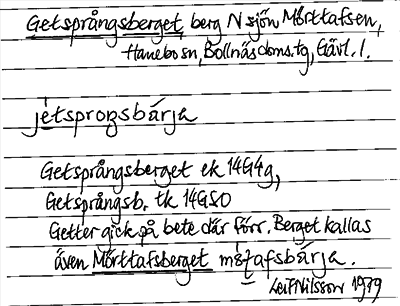 Getsprångsberget, berg N sjön Mörttafsen,
Hanebo sn, Bollnäs doms.tg, Gävl. l.
jètsproŋsbárja
Getsprångsberget ek 14G4g,
Getsprångsb. tk 14GSO
Getter gick på bete där förr. Berget kallas
även Mörttafsberget mö̀ṭafsbárja.
Leif Nilsson 1979